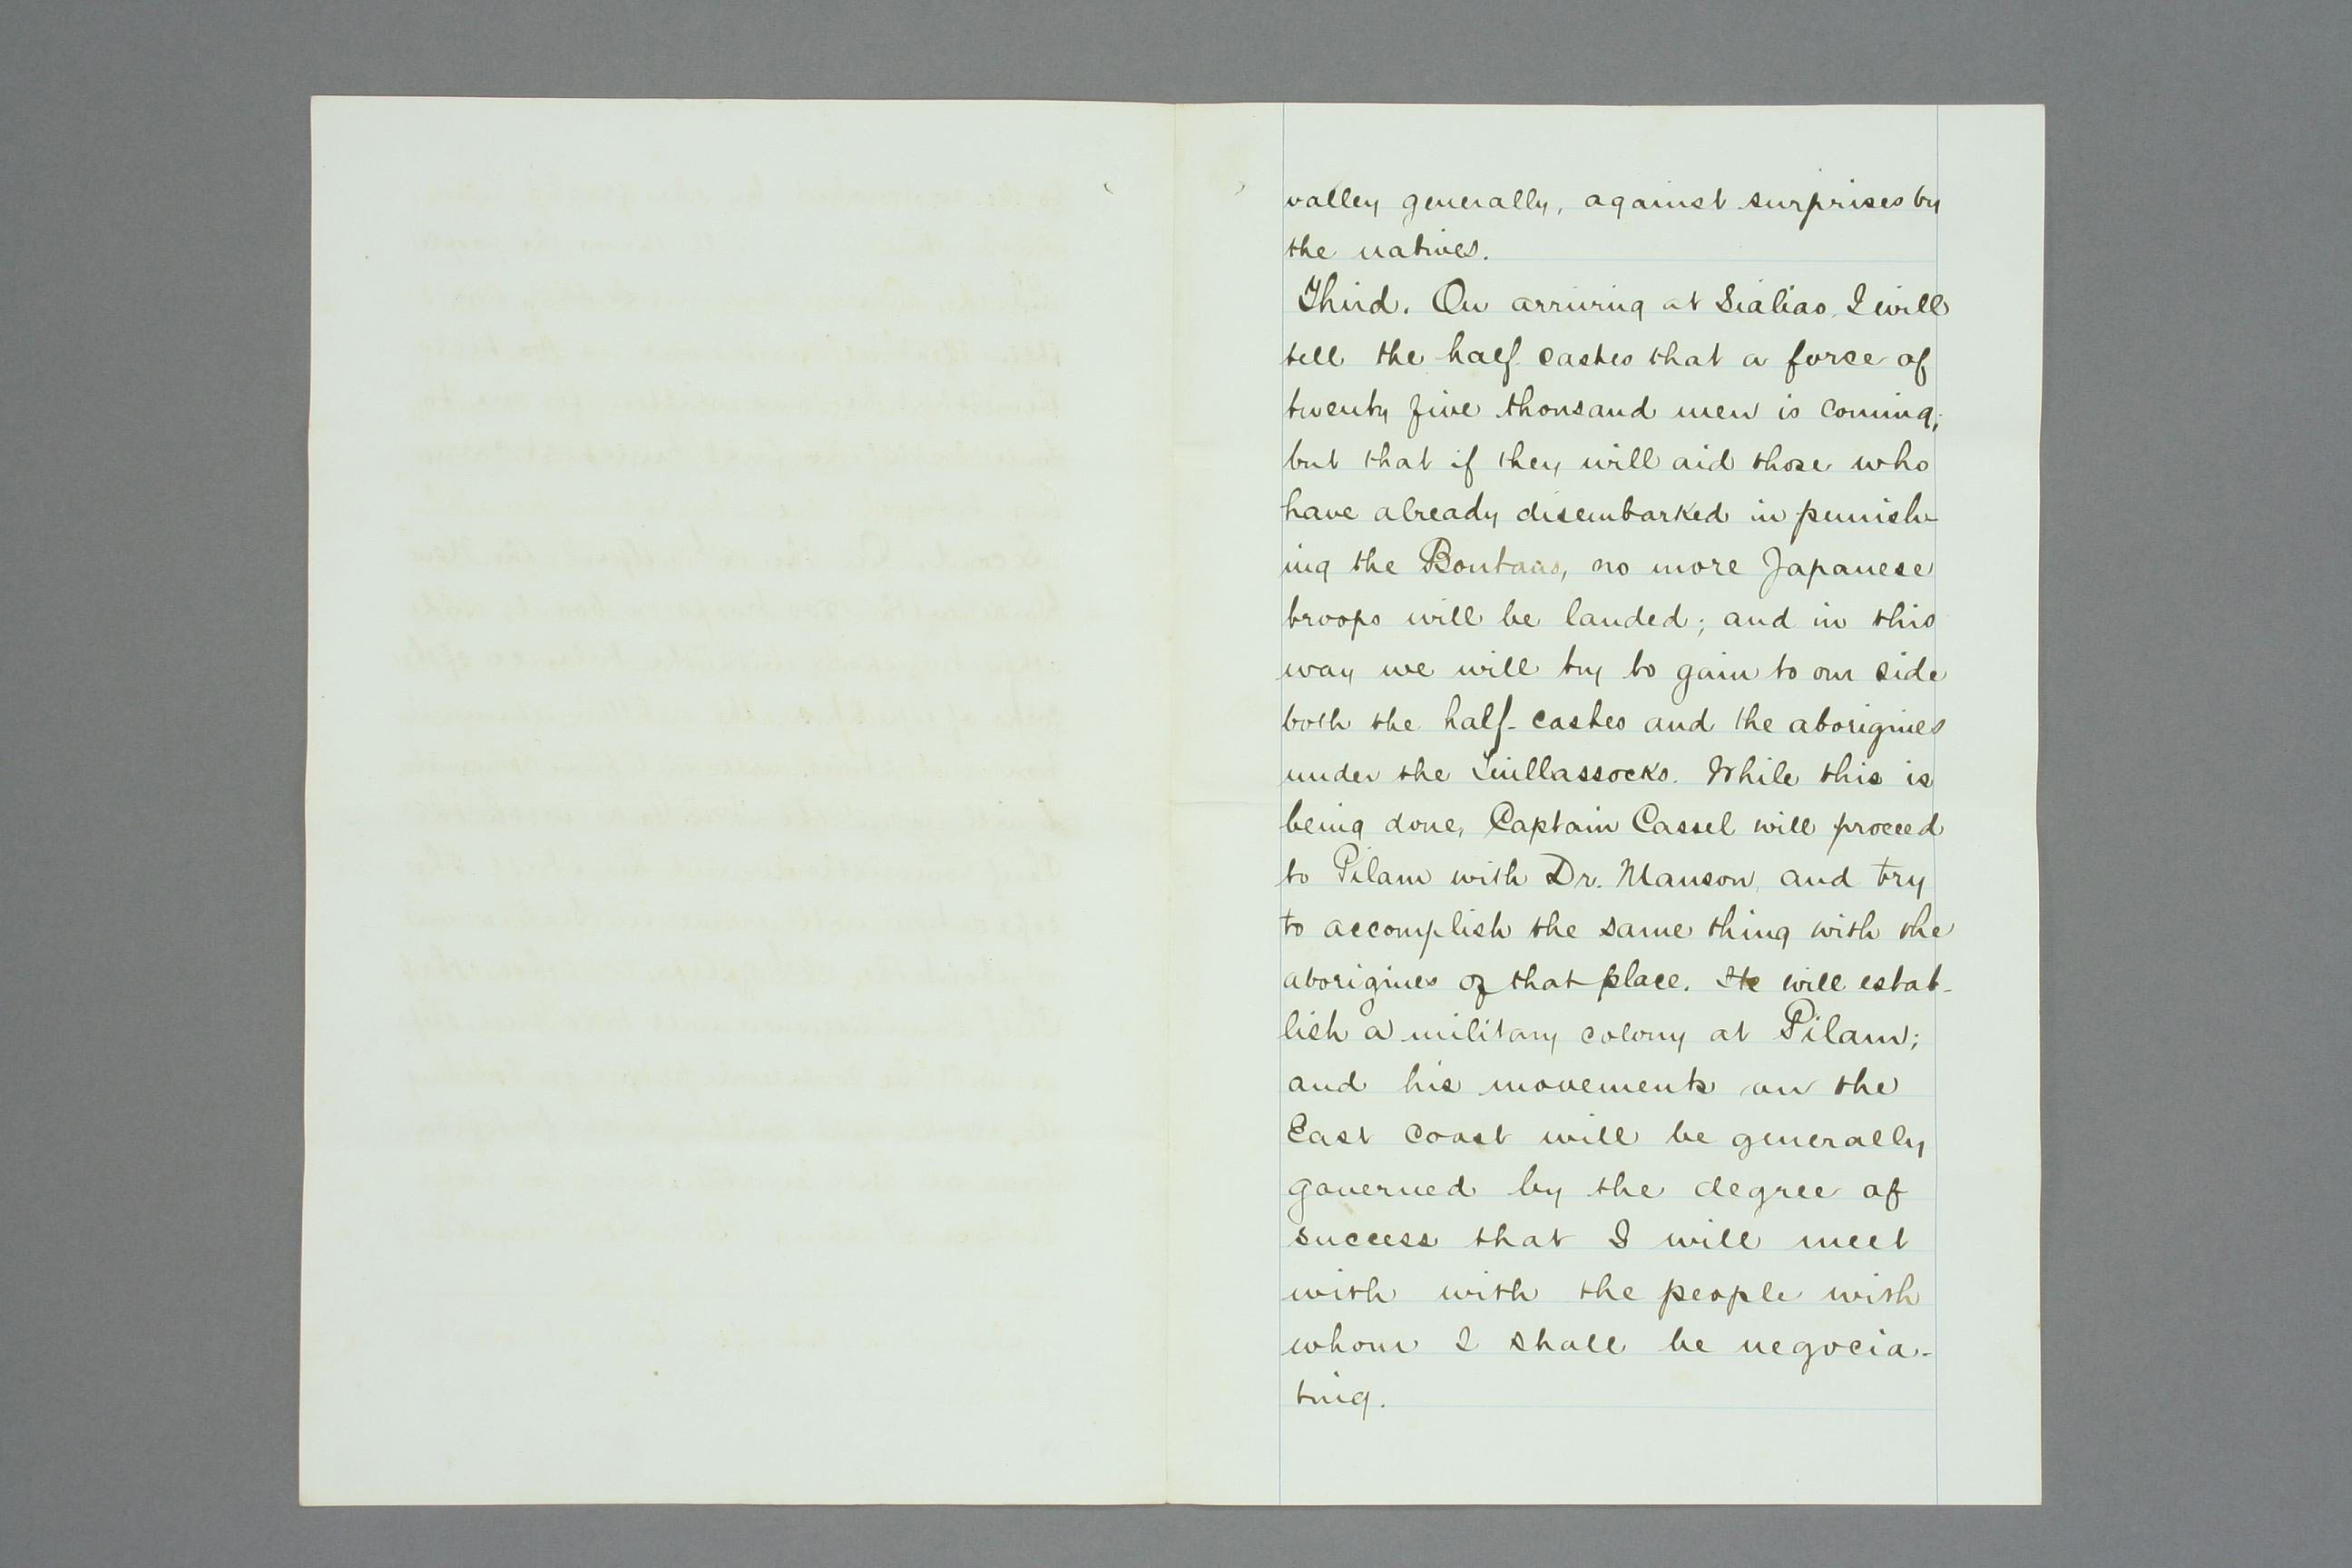 valley generally, against surprises by
the natives.
Third. On arriving at Sialiao, I will
tell the half castes that a force of
twenty five thousand men is coming;
but that if they will aid those who
have already disembarked in punish-
ing the Boutans, no more Japanese
troops will be landed; and in this
way we will try to gain to our side
both the half-castes and the aborigines
under the Tuillassocks. While this is
being done, Captain Cassel will proceed
to Pilam with Dr. Manson, and try
to accomplish the same thing with the
aborigines of that place. He will estab-
lish a military colony at Pilam;
and his movements on the
East Coast will be generally
governed by the degree of
success that I will meet
with with the people with
whom I shall be negocia-
ting.